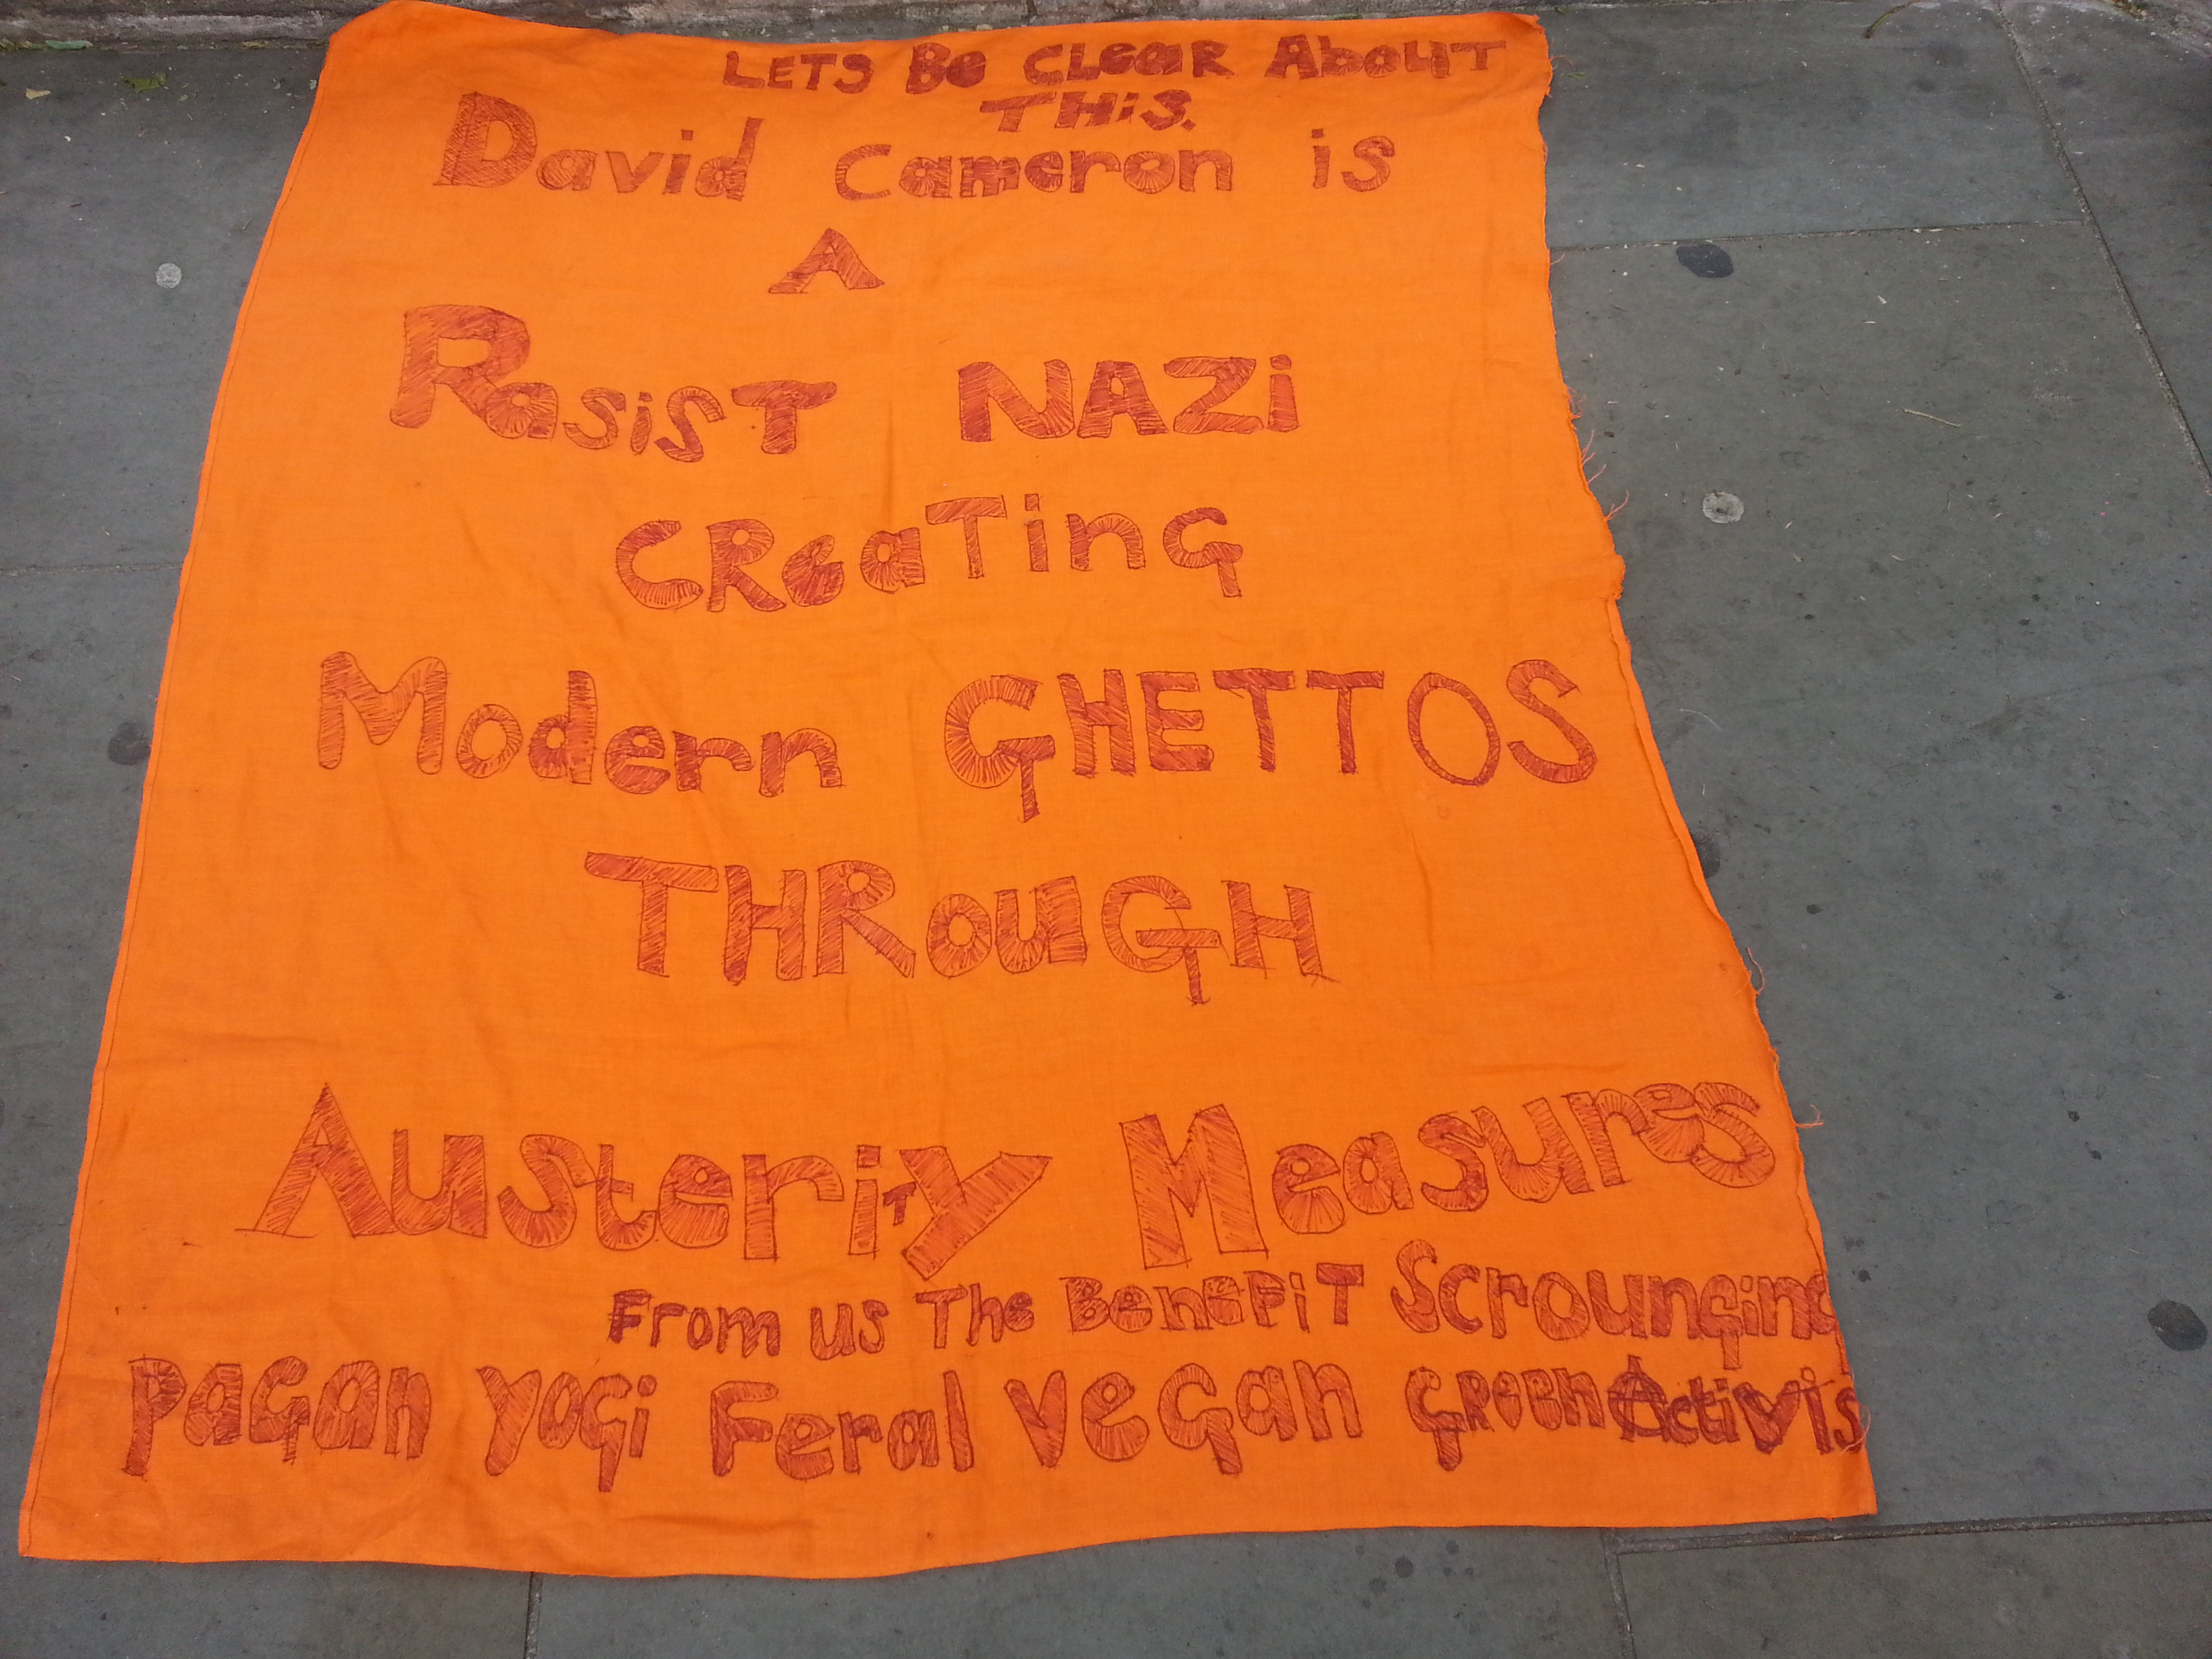 LETS Be CLeaR AboUT
THiS.
David Cameron is
A
RasisT NAZi
CReaTinG
Modern GHETTOS
THRouGH
AusteriTy Measures
From us The BenefiT Scrounging
PaGan yoGi Feral VeGan GReen Activis